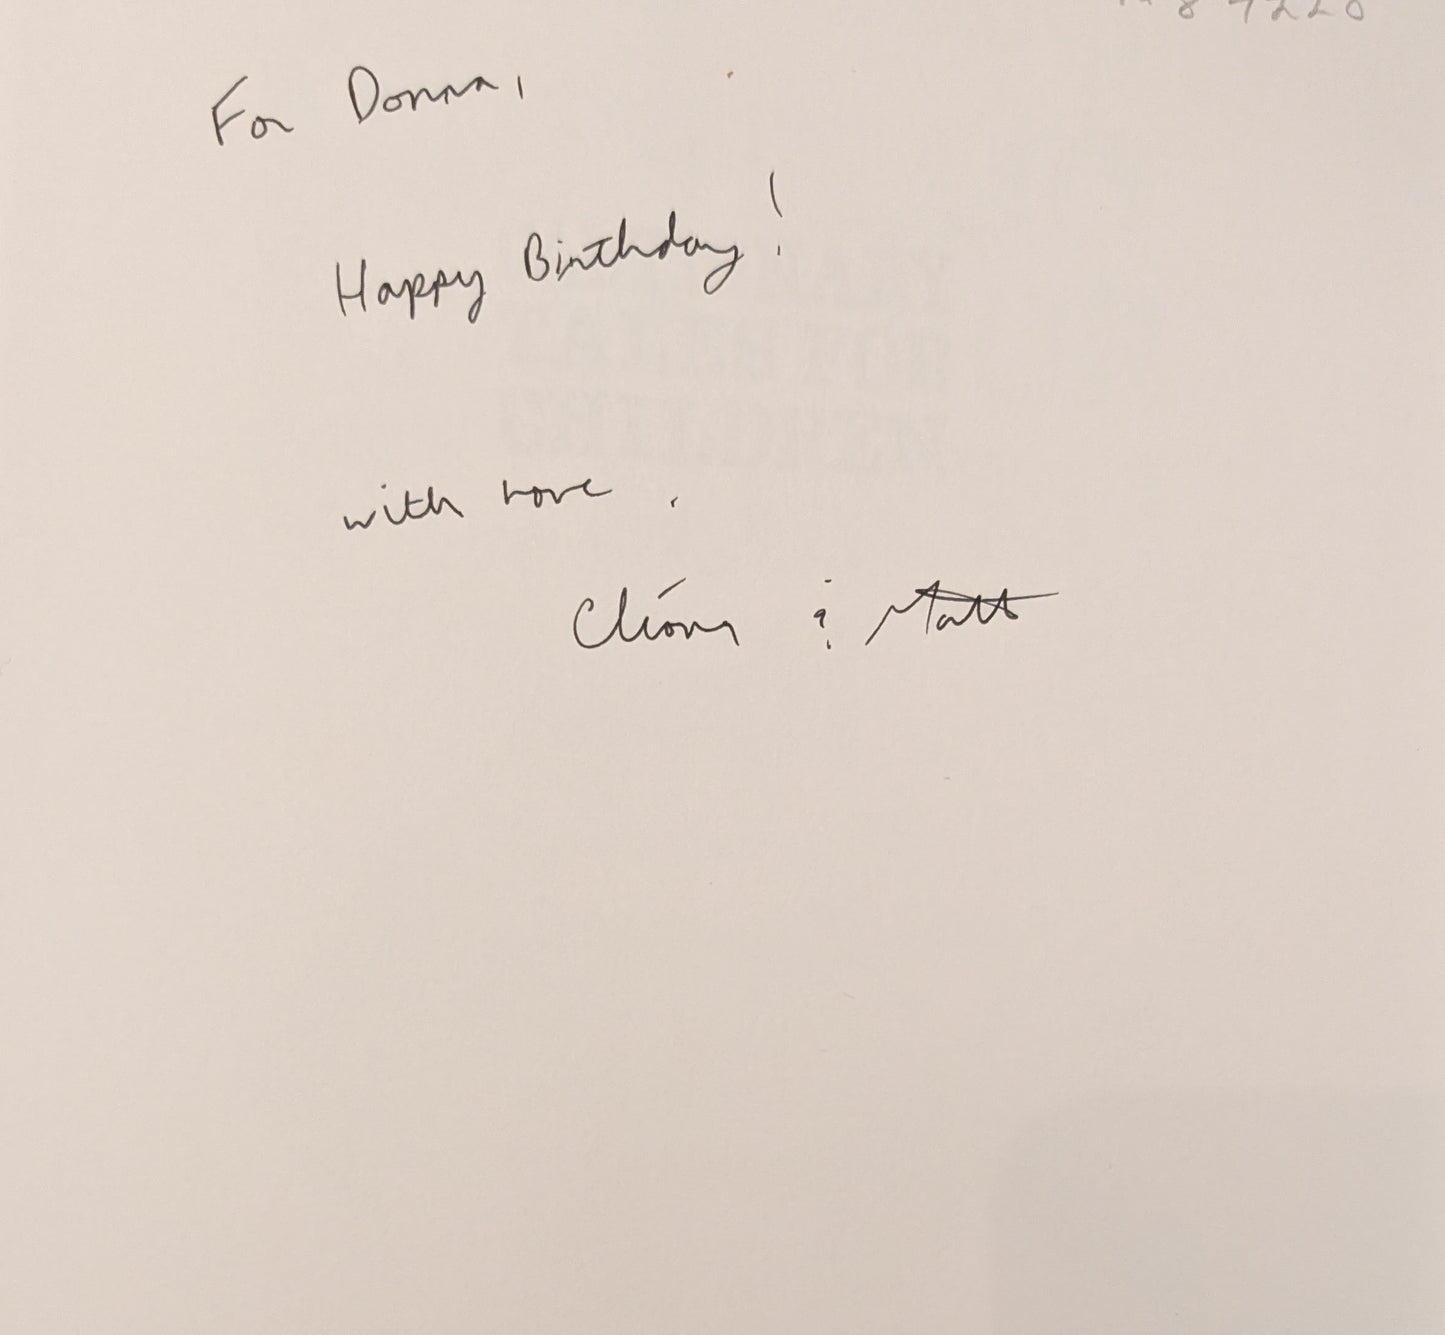 For Donna,
Happy Birthday!
with love,
Clíona & Matt